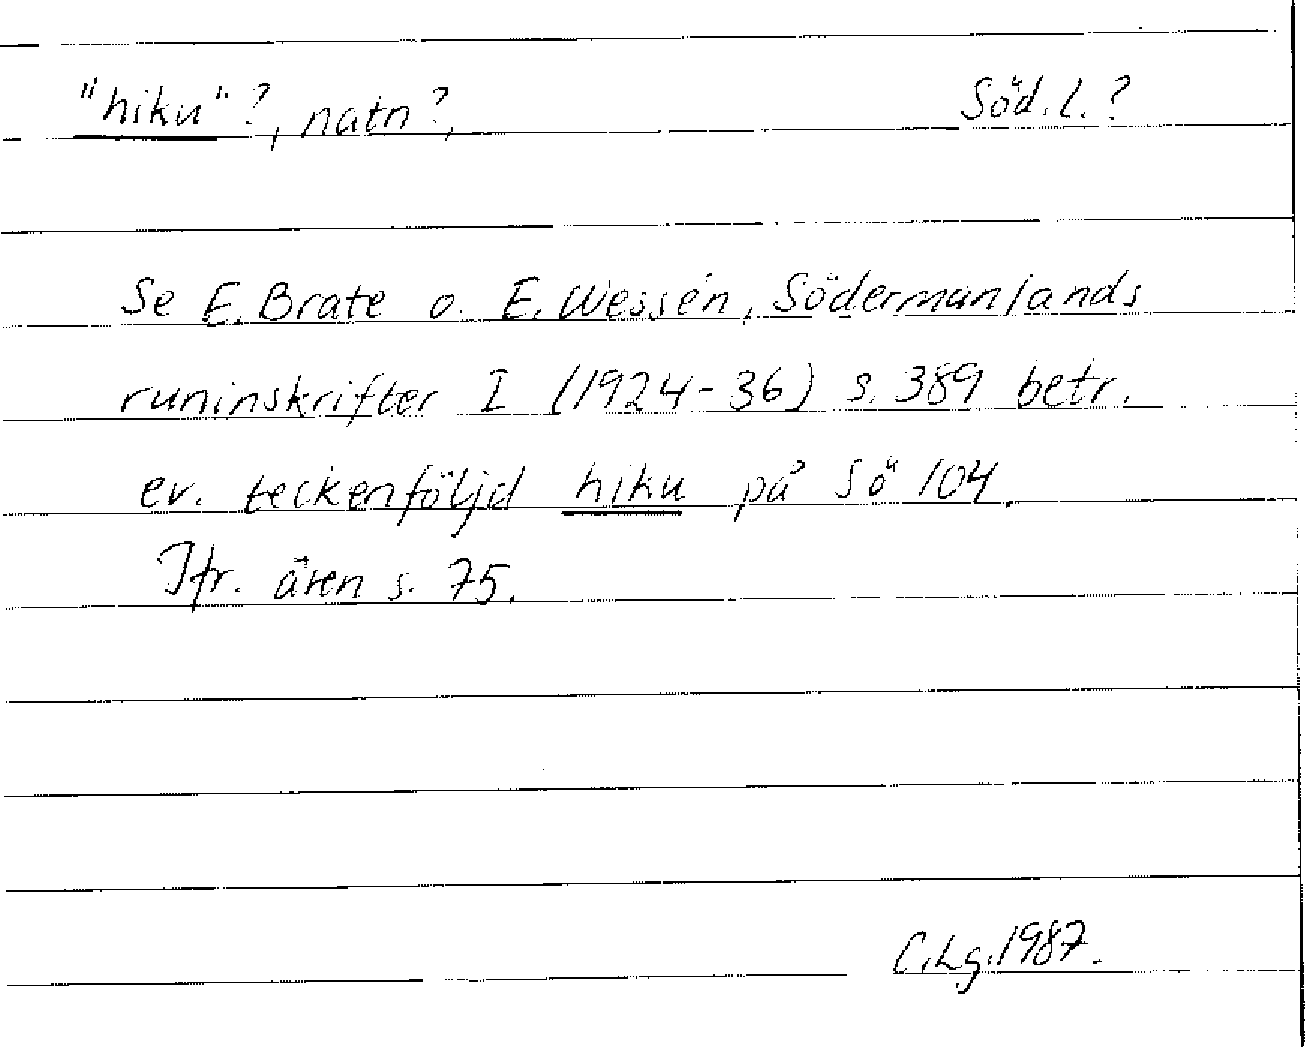 "hiku"?, natn?, Söd. L.?
Se E. Brate o. E. Wessén, Södermanlands
runinskrifter I (1924-36) s. 389 betr.
ev. teckenföljd hiku på Sö 104.
Jfr. även s. 75.
C.Lg. 1987.